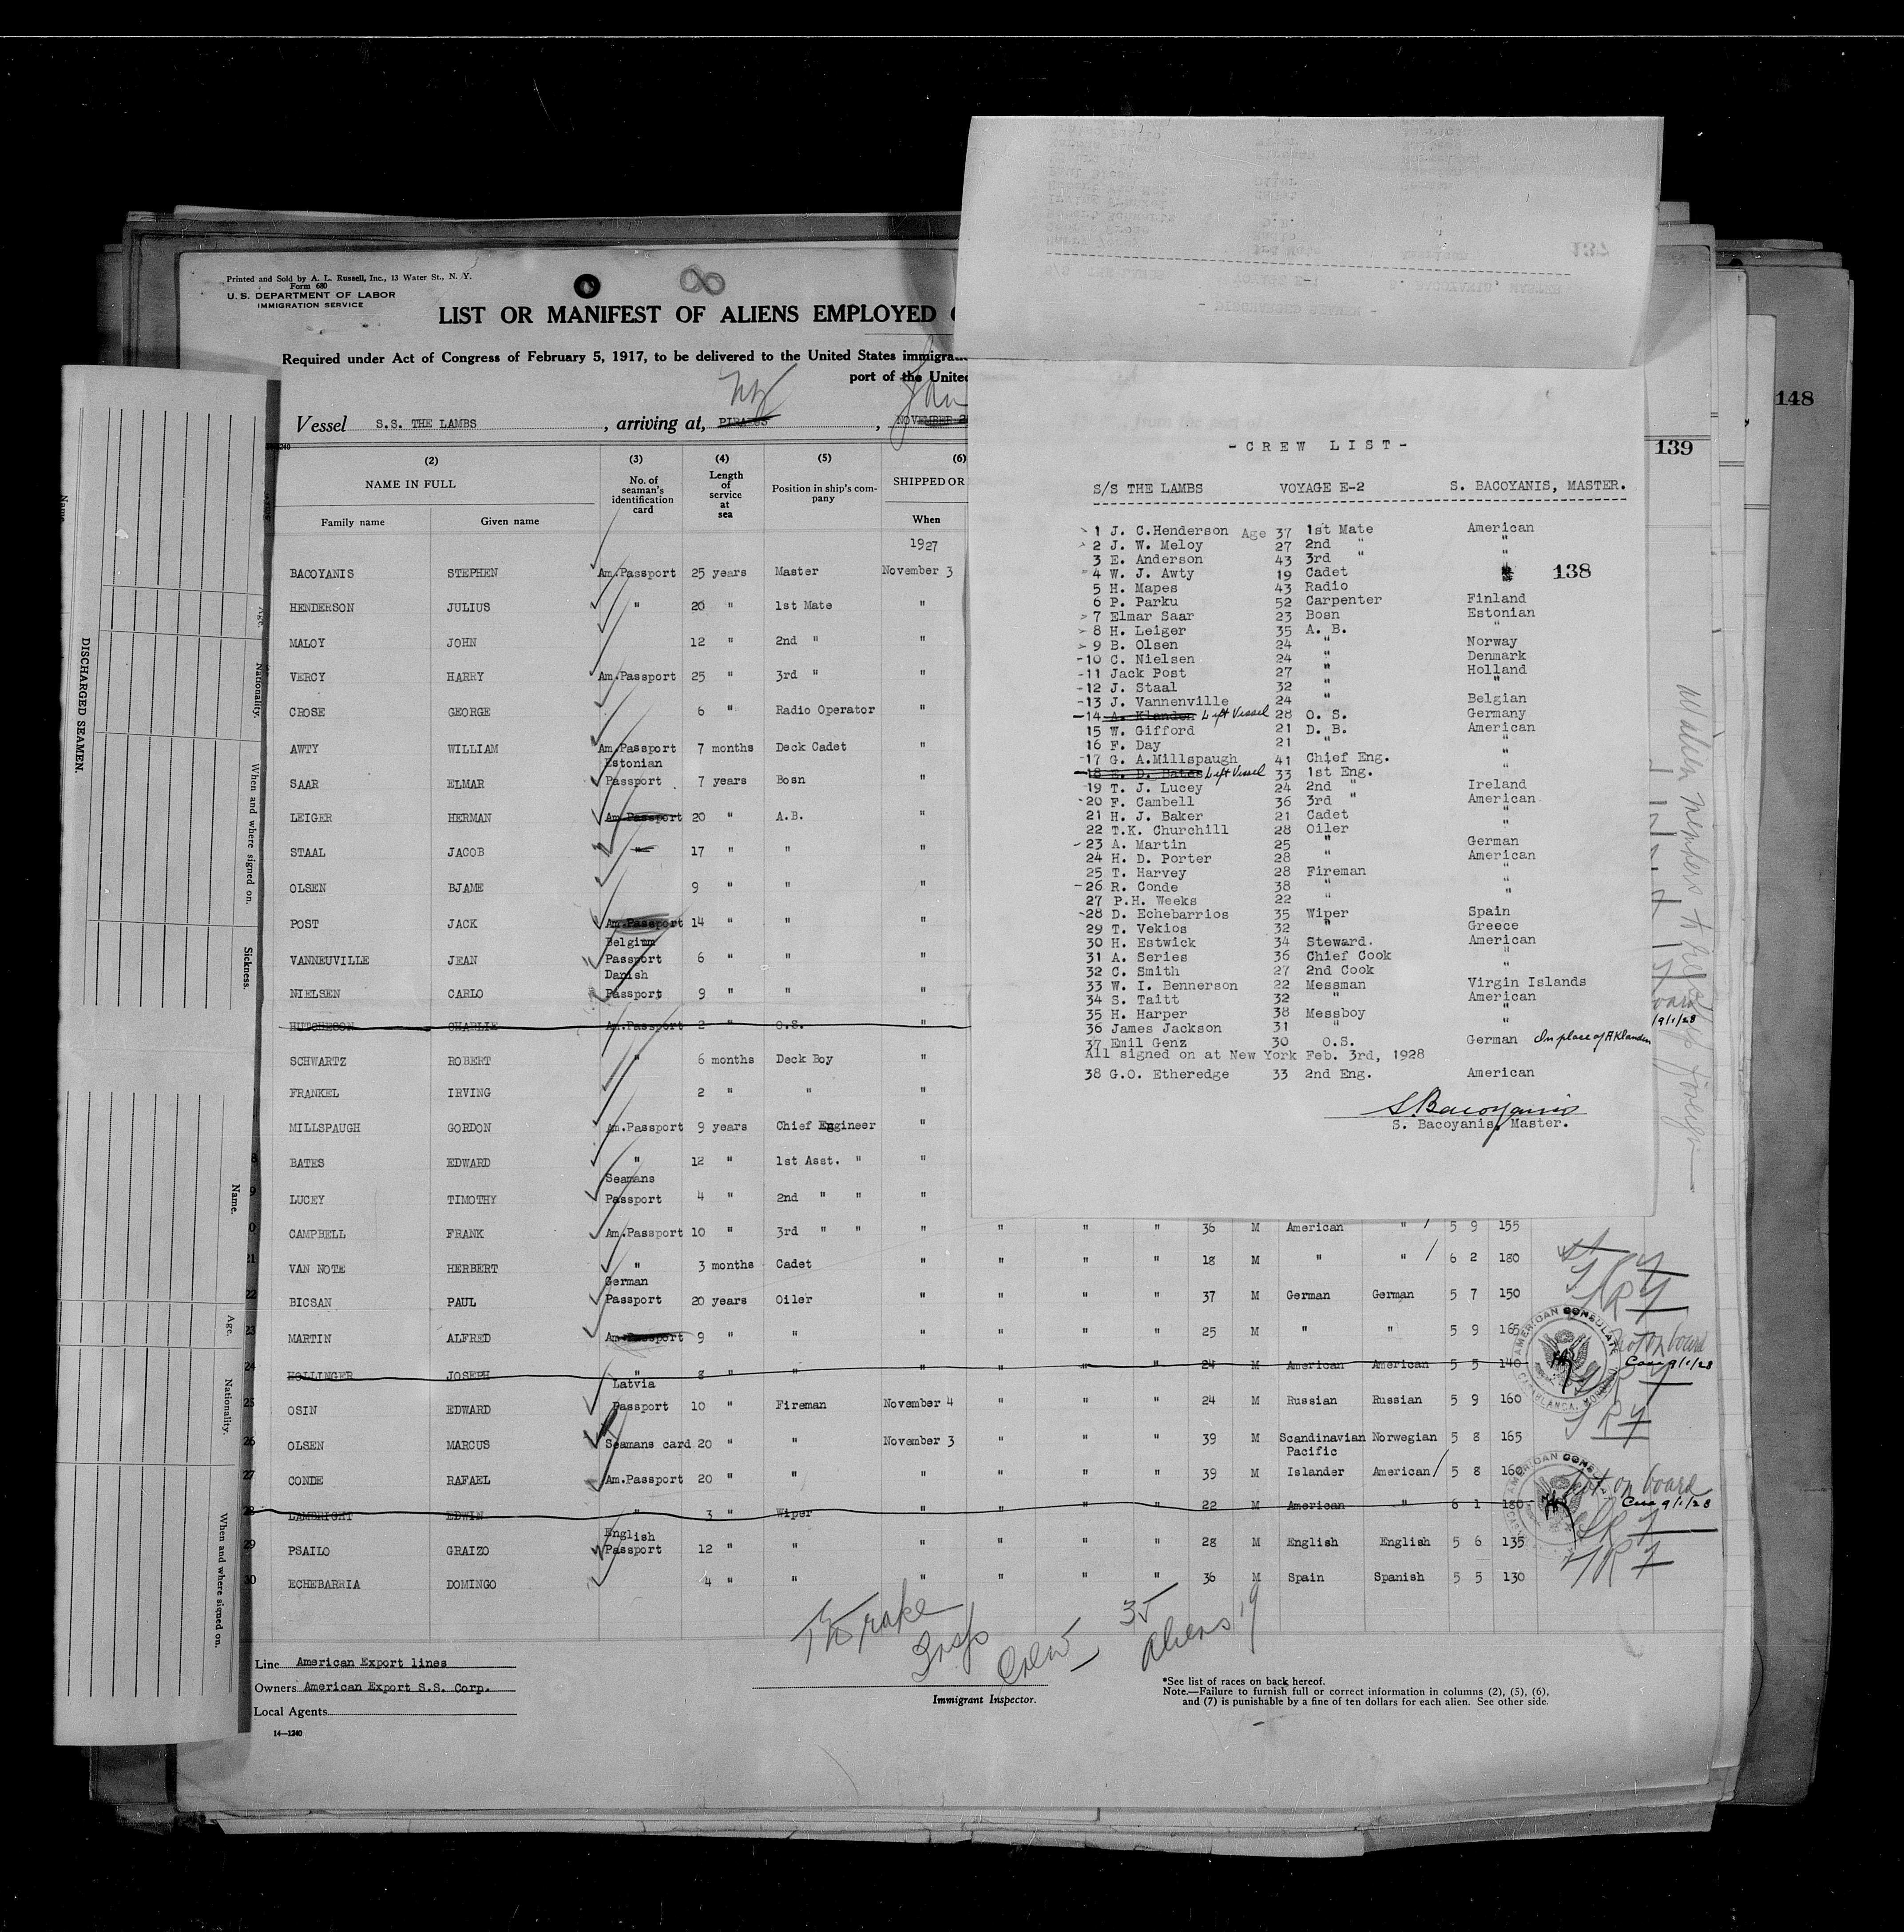 Printed and Sold by A. L. Russell, Inc., 13 Water St., N. Y.
Form 680
U. S. DEPARTMENT OF LABOR
IMMIGRATION SERVICE
LIST OR MANIFEST OF ALIENS EMPLOYED
Required under Act of Congress of February 5, 1917, to be delivered to the United States
port of the United
Vessel S.S. THE LAMBS, arriving at, PIRAEUS NY, NOVEMBER Jan
(2) (3) (4) (5) (6)
NAME IN FULL No. of seaman's identification card Length of service at sea Position in ship's company SHIPPED OR
Family name Given name When
1927
BACOYANIS STEPHEN Am.Passport 25 years Master November 3
HENDERSON JULIUS " 20 " 1st Mate "
MALOY JOHN 12 " 2nd " "
VERCY HARRY Am.Passport 25 " 3rd " "
CROSE GEORGE 6 " Radio Operator "
AWTY WILLIAM Am.Passport 7 months Deck Cadet "
SAAR ELMAR Estonian Passport 7 years Bosn "
LEIGER HERMAN Am.Passport 20 " A.B. "
STAAL JACOB " 17 " " "
OLSEN BJAME 9 " " "
POST JACK Am.Passport 14 " " "
VANNEUVILLE JEAN Belgium Passport 6 " " "
NIELSEN CARLO Danish Passport 9 " " "
HUTCHESON CHARLIE Am.Passport 2 " O.S. "
SCHWARTZ ROBERT " 6 months Deck Boy "
FRANKEL IRVING 2 " " "
MILLSPAUGH GORDON Am.Passport 9 years Chief Engineer "
BATES EDWARD " 12 " 1st Asst. " "
LUCEY TIMOTHY Seamans Passport 4 " 2nd " " "
CAMPBELL FRANK Am.Passport 10 " 3rd " " " " " " 36 M American " 5 9 155
21 VAN NOTE HERBERT " 3 months Cadet " " " " 18 M " " 6 2 180
22 BICSAN PAUL German Passport 20 years Oiler " " " " 37 M German German 5 7 150
23 MARTIN ALFRED Am.Passport 9 " " " " " " 25 M " " 5 9 165
24 HOLLINGER JOSEPH " 8 " " " " " 24 M American American 5 5 140 not on board
25 OSIN EDWARD Latvia Passport 10 " Fireman November 4 " " " 24 M Russian Russian 5 9 160
26 OLSEN MARCUS Seamans card 20 " " November 3 " " " 39 M Scandinavian Norwegian 5 8 165
27 CONDE RAFAEL Am.Passport 20 " " " " " " 39 M Pacific Islander American 5 8 160
28 LAMBRIGHT EDWIN " 3 " Wiper " " " 22 M American " 6 1 180 not on board
29 PSAILO GRAIZO English Passport 12 " " " " " " 28 M English English 5 6 135
30 ECHEBARRIA DOMINGO 4 " " " " " " 36 M Spain Spanish 5 5 130
Insp
Crew 35
Aliens 19
Line American Export lines
Owners American Export S.S. Corp.
Local Agents
14—1240
Immigrant Inspector.
*See list of races on back hereof.
Note.—Failure to furnish full or correct information in columns (2), (5), (6),
and (7) is punishable by a fine of ten dollars for each alien. See other side.
AMERICAN CONSULATE CASABLANCA, MOROCCO
- CREW LIST -
S/S THE LAMBS VOYAGE E-2 S. BACOYANIS, MASTER.
1 J. C.Henderson Age 37 1st Mate American
2 J. W. Meloy 27 2nd " "
3 E. Anderson 43 3rd " "
4 W. J. Awty 19 Cadet "
5 H. Mapes 43 Radio
6 P. Parku 52 Carpenter Finland
7 Elmar Saar 23 Bosn Estonian
8 H. Leiger 35 A. B. "
9 B. Olsen 24 " Norway
10 C. Nielsen 24 " Denmark
11 Jack Post 27 " Holland
12 J. Staal 32 " "
13 J. Vannenville 24 " Belgian
14 A. Klanden Left Vessel 28 O. S. Germany
15 W. Gifford 21 D. B. American
16 F. Day 21 " "
17 G. A.Millspaugh 41 Chief Eng. "
18 E. D. Bates Left Vessel 33 1st Eng.
19 T. J. Lucey 24 2nd " Ireland
20 F. Cambell 36 3rd " American
21 H. J. Baker 21 Cadet "
22 T.K. Churchill 28 Oiler "
23 A. Martin 25 " German
24 H. D. Porter 28 " American
25 T. Harvey 28 Fireman "
26 R. Conde 38 " "
27 P.H. Weeks 22 " "
28 D. Echebarrios 35 Wiper Spain
29 T. Vekios 32 " Greece
30 H. Estwick 34 Steward. American
31 A. Series 36 Chief Cook "
32 C. Smith 27 2nd Cook "
33 W. I. Bennerson 22 Messman Virgin Islands
34 S. Taitt 32 " American
35 H. Harper 38 Messboy "
36 James Jackson 31 " "
37 Emil Genz 30 O.S. German In place of A Klanden
All signed on at New York Feb. 3rd, 1928
38 G.O. Etheredge 33 2nd Eng. American
S. Bacoyanis
S. Bacoyanis, Master.
138
139
148
DISCHARGED SEAMEN.
Name.
Age.
Nationality.
When and where signed on.
Sickness.
Name.
Age.
Nationality.
When and where signed on.